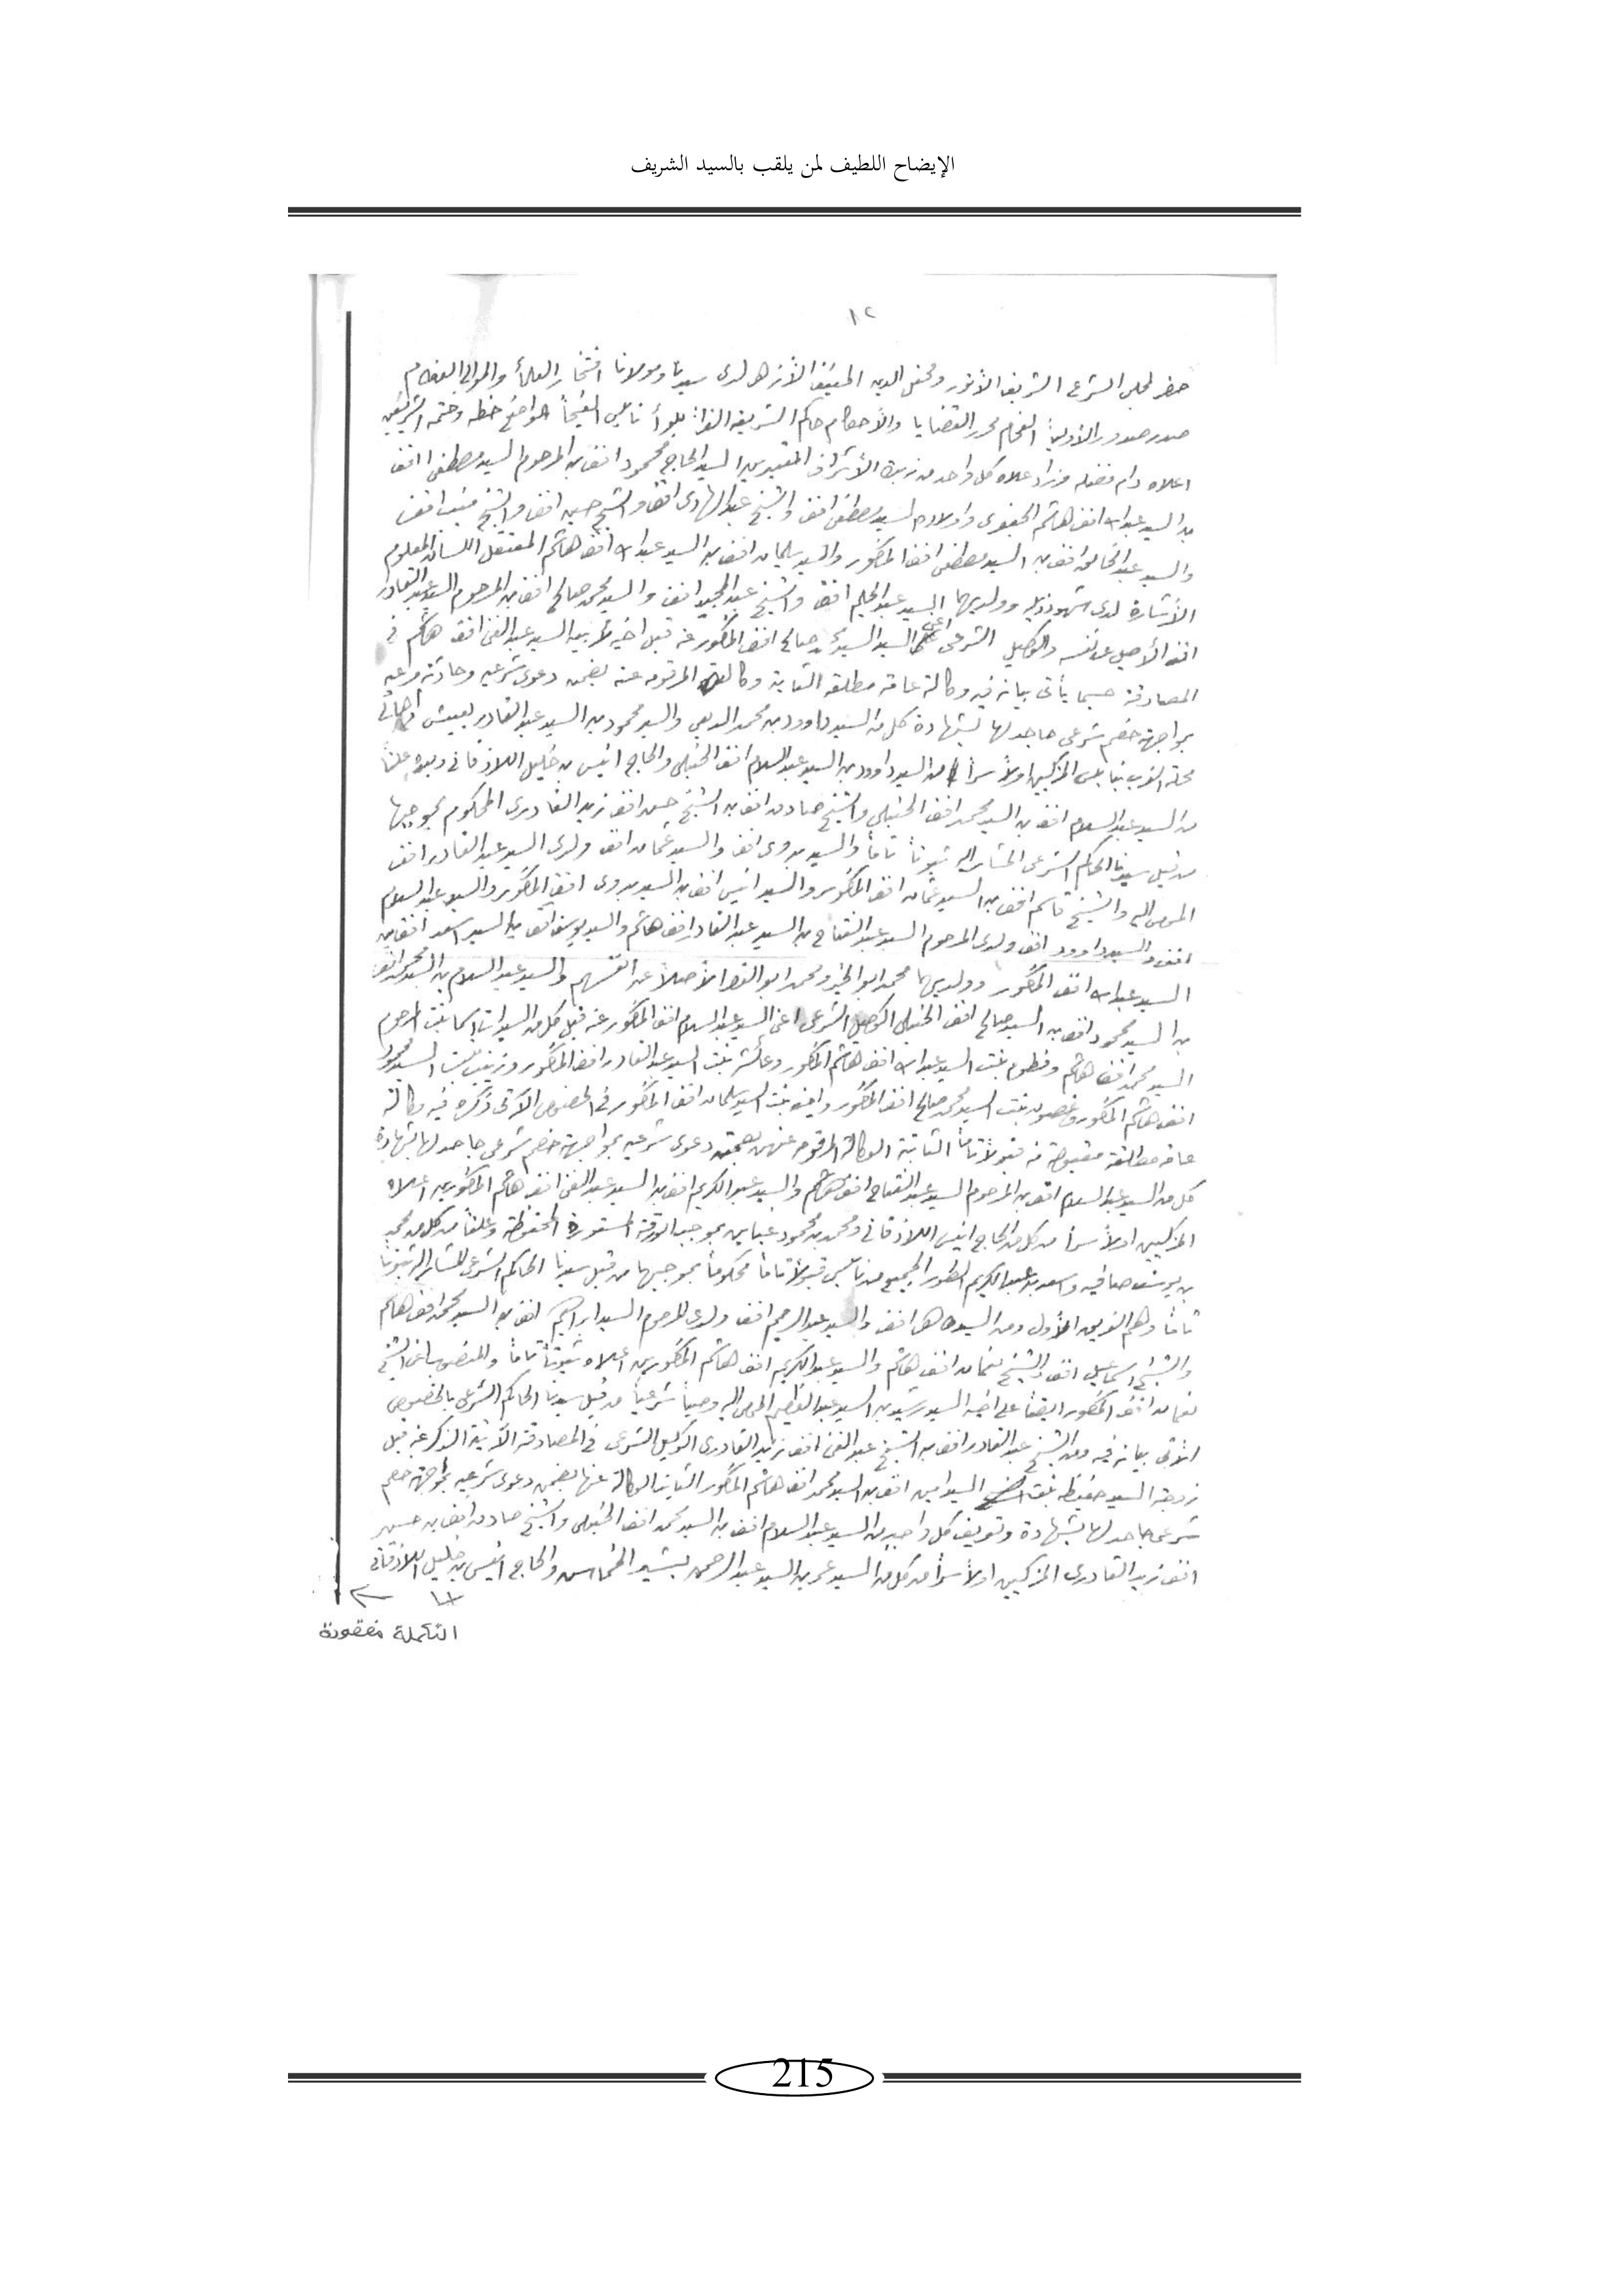 الإيضاح اللطيف لمن يلقب بالسيد الشريف
١٢
حضر لمجلس الشرع الشريف الأنور ومحفل الدين المنيف الأزهر لدى سيدنا ومولانا افتخار العلماء والموالي العظام
صدر صدور الأولياء الفخام محرر القضايا والأحكام حاكم الشريعة الغراء بلواء نابلس الفيحاء الواضع خطه وختمه الشريفين
اعلاه دام فضله وزاد علاه كل واحد من زبدة الأشراف المعتبرين السيد الحاج محمود افندي بن المرحوم السيد مصطفى افندي
بن السيد عبدالله افندي هاشم الجعفري واولاده السيد مصطفى افندي والشيخ عبدالهادي افندي والشيخ حسين افندي والشيخ منيب افندي
والسيد عبدالخالق افندي بن السيد مصطفى افندي المذكور والسيد سليمان افندي بن السيد عبدالله افندي هاشم المعتقل اللسان المعلوم
الأشارة لدى شهود ذيله وولديهما السيد عبدالحليم افندي والشيخ عبدالمجيد افندي والسيد محمد صالح افندي بن المرحوم السيد عبدالقادر
افندي الأصيل عن نفسه والوكيل الشرعي اعني السيد محمد صالح افندي المذكور عن قبل اخيه السيد عبدالغني افندي هاشم في
المصادقة حسبما يأتي بيانه فيه وكالة عامة مطلقة الثابتة وكالته المرقومة عنه بضمن دعوى شرعيه وحادثة مرعيه
بمواجهة خصم شرعي جاحد لها بشهادة كل من السيد داوود بن محمد الديعي والسيد محمود بن السيد عبدالقادر لعيبش من اهالي
محلة الغرب بنابلس المزكيين اولاً سراً من السيد داوود بن السيد عبدالسلام افندي الحنبلي والحاج انيس بن خليل اللاذقاني وبعده علناً
من السيد عبدالسلام افندي بن السيد محمد افندي الحنبلي والشيخ صادق افندي بن الشيخ حسن افندي زيد القادري المحكوم بموجبها
من قبل سيدنا الحاكم الشرعي المشار اليه ثبوتاً تاماً والسيد بدوي افندي والسيد عثمان افندي ولدي السيد عبدالقادر افندي
المومى اليه والشيخ قاسم افندي بن السيد عثمان افندي المذكور والسيد انيس افندي بن السيد بدوي افندي المذكور والسيد عبدالسلام
افندي والسيد داوود افندي ولدي المرحوم السيد عبدالفتاح بن السيد عبدالقادر افندي هاشم والسيد يوسف افندي بن السيد اسعد افندي بن
السيد عبدالله افندي المذكور وولديهما محمد ابو الخير ومحمد ابو النصر الأصلاء عن انفسهم والسيد عبدالسلام بن السيد محمد افندي
بن السيد محمود افندي بن السيد صالح افندي الحنبلي الوكيل الشرعي اعني السيد عبدالسلام افندي المذكور عن قبل كل من السيدات اسما بنت المرحوم
السيد محمد افندي هاشم وفطوم بنت السيد عبدالله افندي هاشم المذكور وعائشة بنت السيد عبدالقادر افندي المذكور وزينب بنت السيد محمود
افندي هاشم المذكور وغصون بنت السيد محمد صالح افندي المذكور وامنه بنت السيد سليمان افندي المذكور في الخصوص الآتي ذكره فيه وكالة
عامه مطلقة مقبوضة منه قبولاً تاماً الثابتة الوكالة المرقومه عنهن بضمن دعوى شرعيه بمواجهة خصم شرعي جاحد لها بشهادة
كل من السيد عبدالسلام افندي بن المرحوم السيد عبدالفتاح افندي هاشم والسيد عبدالكريم افندي بن السيد عبدالغني افندي هاشم المذكورين اعلاه
المزكيين اولاً سراً من كل من الحاج انيس اللاذقاني ومحمد بن محمود عباس بموجب الورقة المستورة المحفوظة وعلناً من كل من محمد
بن يوسف صافيه واسعد بن عبدالكريم الجميع من نابلس قبولاً تاماً محكوماً بموجبها من قبل سيدنا الحاكم الشرعي المشار اليه ثبوتاً
تاماً وهم الفريق الأول ومن السيد افندي والسيد عبدالرحيم افندي ولدي المرحوم السيد ابراهيم افندي بن السيد محمد افندي هاشم
والشيخ اسماعيل افندي والشيخ نعمان افندي هاشم والسيد عبدالكريم افندي هاشم المذكورين اعلاه ثبوتاً تاماً والمنصوب اعني الشيخ
نعمان افندي المذكور ايضاً على اخيه السيد رشيد بن السيد عبدالعظيم المومى اليه وصياً شرعياً من قبل سيدنا الحاكم الشرعي بالخصوص
الآتي بيانه فيه ومن الشيخ عبدالقادر افندي بن الشيخ عبدالغني افندي زيد القادري الوكيل الشرعي في المصادقة الآتية الذكر عن قبل
زوجته السيدة حفيظة بنت السيد امين افندي بن السيد محمد افندي هاشم المذكور الثابتة الوكالة عنها بضمن دعوى شرعيه بمواجهة خصم
شرعي جاحد لها بشهادة وتعريف كل واحد من السيد عبدالسلام افندي بن السيد محمد افندي الحنبلي والشيخ صادق افندي بن حسين
افندي زيد القادري المزكيين اولاً سراً من كل من السيد عمر بن السيد عبدالرحمن بشير الخماس والحاج انيس بن خليل اللاذقاني
التكملة مفقودة
215